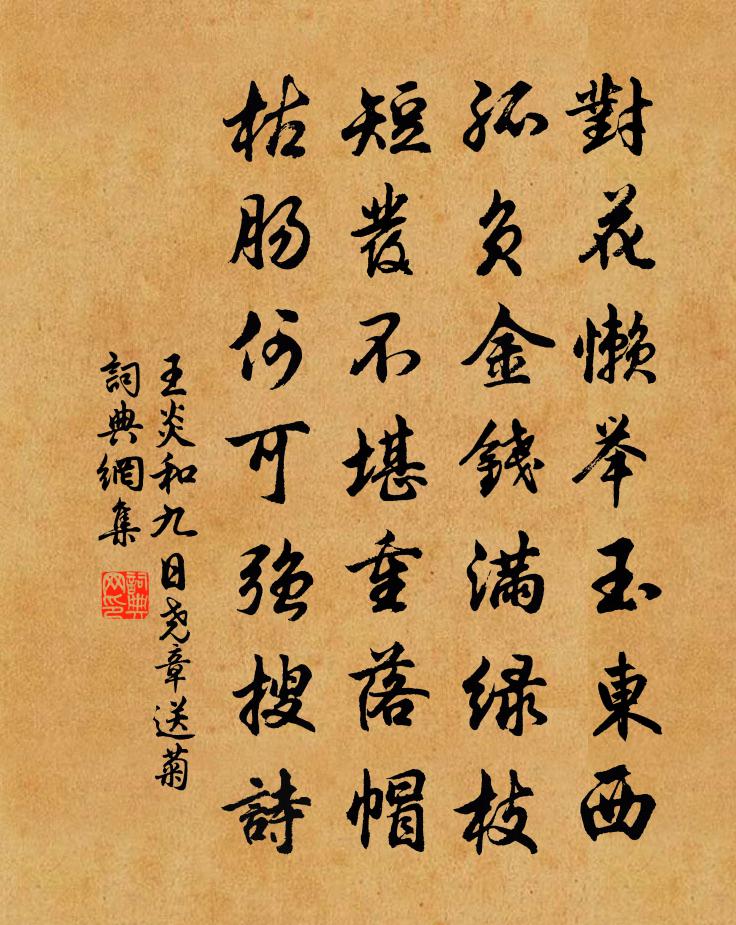 對花懶举玉東西
孤负金錢满緑枝
短發不堪重落帽
枯肠何可强搜詩
王炎和九日尧章送菊
詞典網集
詞典网印